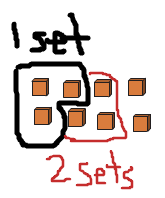 1 set
2 sets